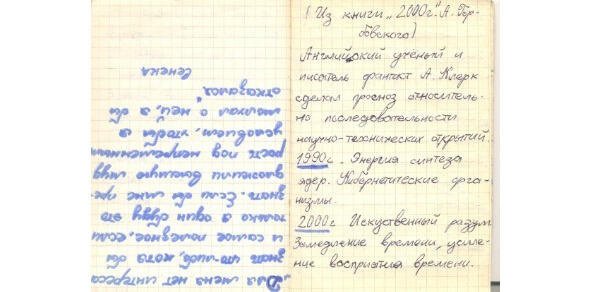 „Для меня нет интереса
знать что-либо, хотя бы
и самое полезное, если
только я один буду это
знать. Если бы мне пре-
дложили высшую муд
рость под непременным
условием, чтобы я
молчал о ней, я бы
отказался"
Сенека
(Из книги „2000г." А. Гор-
бовского)
Английский ученый и
писатель фантаст А. Кларк
сделал прогноз относитель-
но последовательности
научно-технических открытий.
1990г. Энергия синтеза
ядер. Кибернетические орга-
низмы.
2000г Искуственный разум
Замедление времени, усиле-
ние восприятия времени.